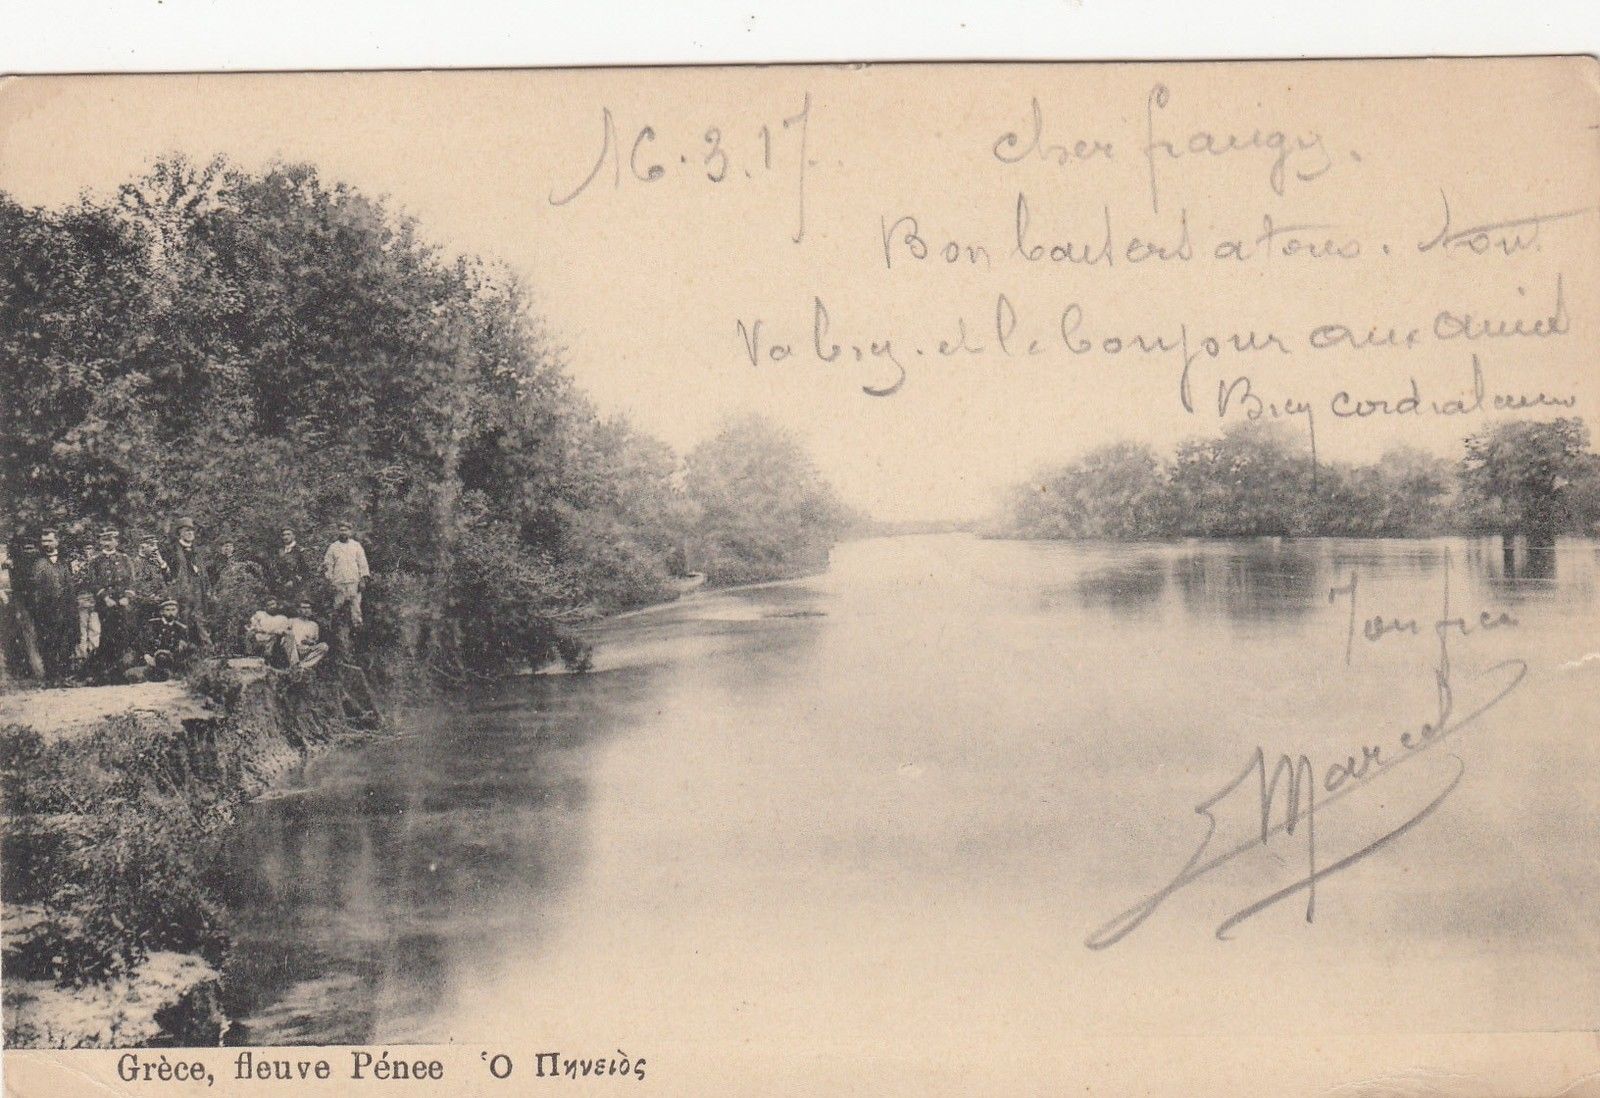 16.3.17.
cher frangy.
Bon baisers a tous. tout
va bien. et le bonjour aux amies
Bien cordialement
Ton frer
Marcel
Grèce, fleuve Pénee Ὁ Πηνειὸς